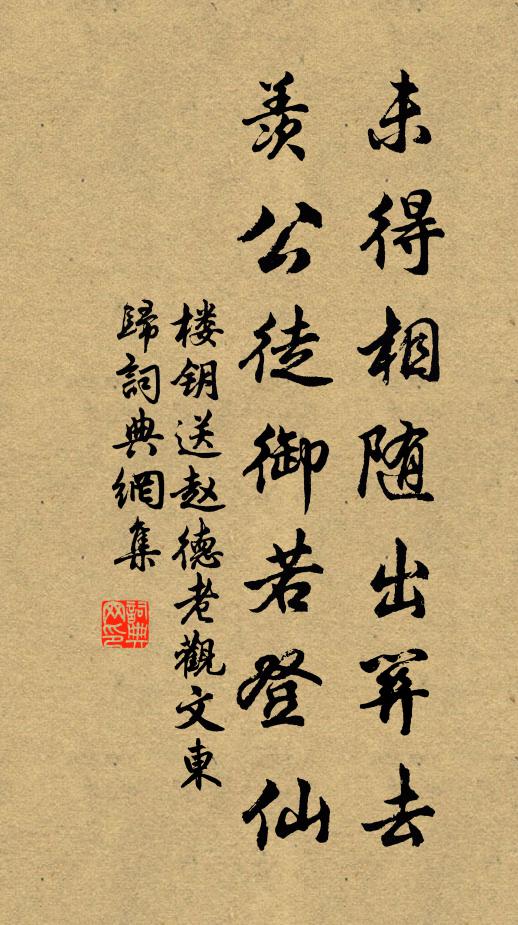 未得相随出關去
羡公徒御若登仙
楼钥送赵德老觀文東
歸詞典網集
詞典
网印